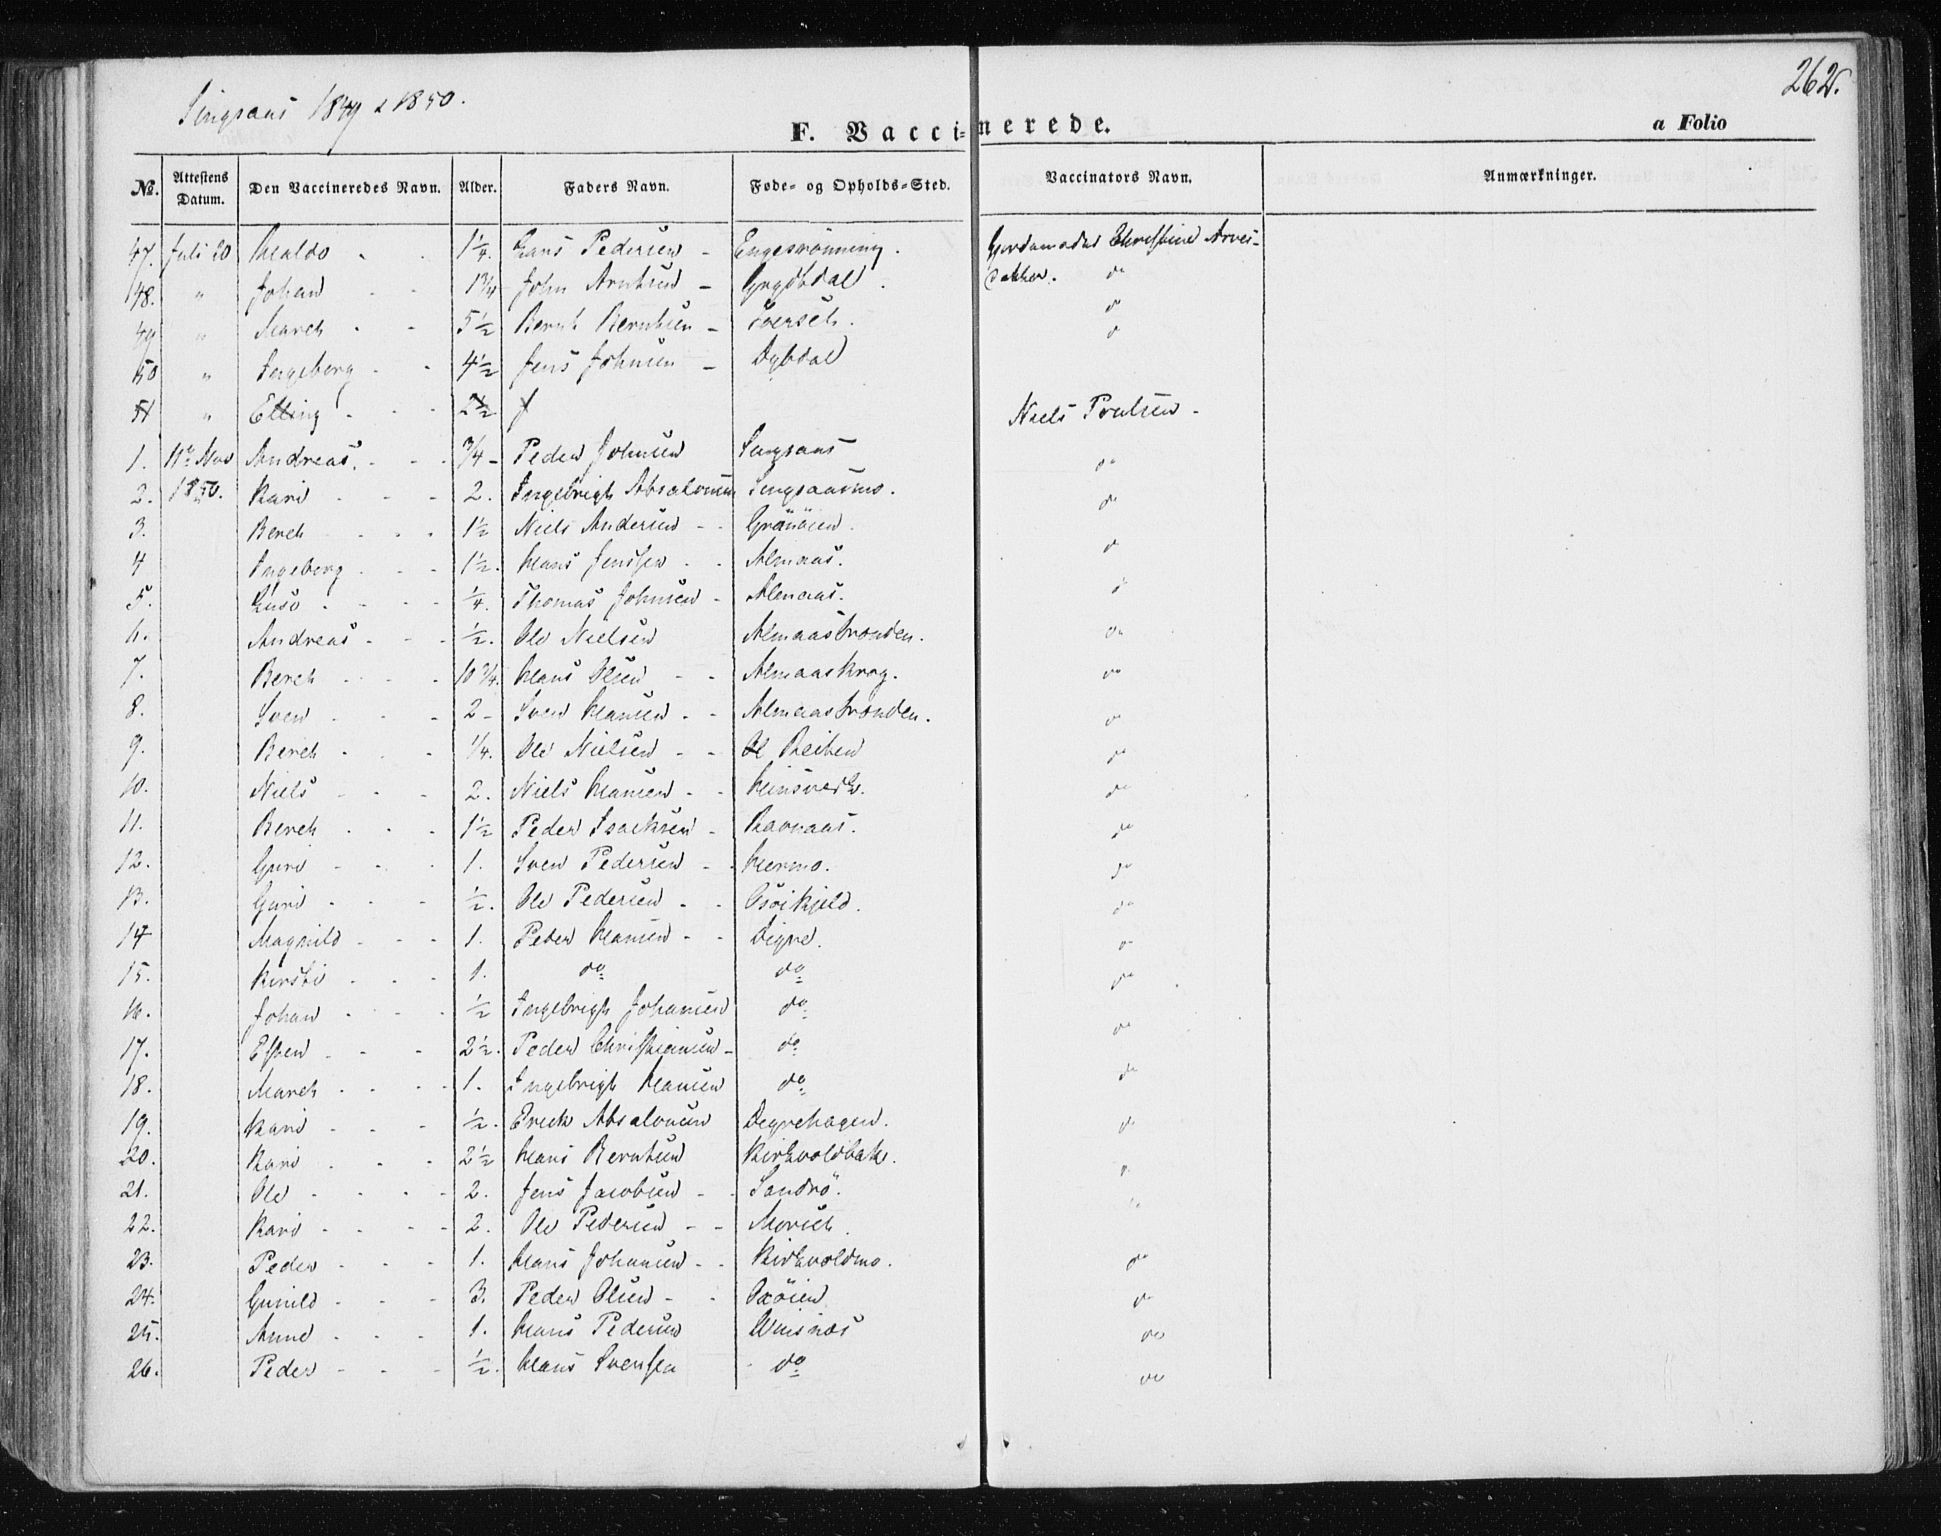 Singsaas 1849 & 1850.
262.
F. Vaccinerede.
a Folio
No. Attestens Datum. Den Vaccineredes Navn. Alder. Faders Navn. Føde- og Opholds-Sted. Vaccinators Navn. Anmærkninger.
47. Juli 20 Haldo 1 1/4. Lars Pedersen Engesrønning. Jordemoder Christine Arnes-
48. " Johan 1 3/4 John Arntsen bakken. do
49 " Mareth 5 1/2 Bernt Berntsen do
50 " Ingeborg 4 1/2 Jens Johnsen Dybdal do
51 " Elling 2 1/2
1. 11te Nov Andreas. 3/4 Peder Johnsen Singsaas Niels Poulsen
2. 1850. Kari 2. Ingebrigt Absalonsen Singsaasmo. do
3. Bereth 1 1/2 Niels Andersen Granøien. do
4 Ingeborg 1 1/2. Hans Jenssen Almaas. do
5. 1/4. Thomas Johnsen Almaas. do
6. Andreas 1/2. Ole Nielsen Almaastrønden. do
7. Bereth 10 3/4. Hans Olsen Almaaskrog. do
8. Sven 2 Sven Hansen Almaastrønden. do
9. Bereth 1/4. Ole Nielsen Reiten do
10. Niels 2. Niels Hansen do
11. Bereth 1 1/2 Peder Isacksen Ravnaas. do
12. Guri 1. Sven Pedersen Hermo. do
13. Guri 1/2. Ole Pedersen do
14 Magnild 1. Peder Hansen Digre. do
15. Kirsti 1. do do do
16. Johan 1/2 Ingebrigt Johansen do do
17. Esten 2 1/2. Peder Christiansen do do
18. Mareth 1. Ingebrigt Hansen do do
19. Kari 1/2. Erick Absalonsen Degrehagen. do
20. Kari 2 1/2 Hans Berntsen Kirkvoldbak. do
21. Ole 2. Jens Jacobsen Sandrø.
22. Kari 2. Ole Pedersen
23. Peder 1. Hans Johansen Kirkvoldmo. do
24. Gunild 3. Peder Olsen do
25. Anne 1. Hans Pedersen Winsnes do
26. Peder 1/2. Hans Svensen do do